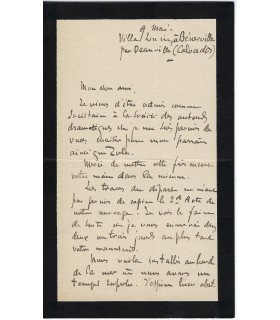 9 Mai:
Villa à Bénerville
par Deauville (Calvados)
Mon cher ami,
Je viens d'être admis comme
Sociétaire à la Société des auteurs
dramatiques et je me suis permis de
vous pour mon parrain
ainsi que
Merci de mettre cette fois encore
votre main dans la mienne.
Les tracas du départ ne m'ont
pas permis de copier le 2e Acte de
notre ouvrage. Je vais le faire
de suite et je vous enverrai d'ici
deux ou trois jours au plus tard
votre manuscrit.
Nous voilà installés au bord
de la mer où nous avons un
temps superbe. J'espère bien